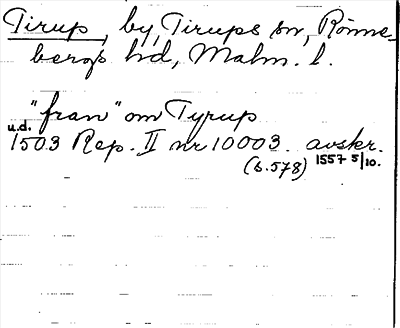 Tirup, by, Tirups sn, Rönne-
bergs hd, Malm. l.
"fran" om Tyrup
u.d.
1503 Rep. II nr 10003. avskr.
(s. 578) 1557 5/10.